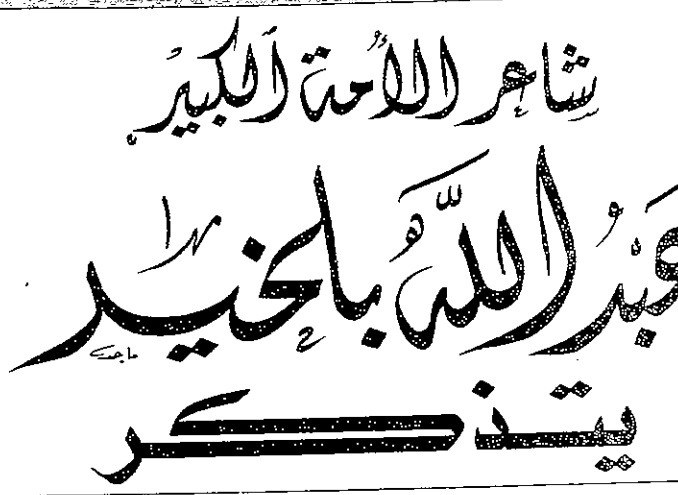 شاعر الأُمة الكبيرُ
عَبْدُ اللّهُ بلخير
ماجد
يتذكر